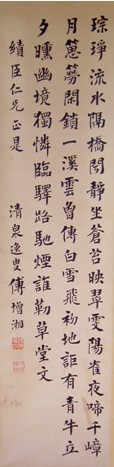 琮琤流水隔橋聞靜坐蒼苔映翠雯陽雀夜啼千嶂
月閑鎖一溪雲曾傳白雪飛初地詎有青牛立
夕曛幽境獨憐臨驛路馳煙誰勒草堂文
績臣仁兄正是
清泉逸叟傅增湘